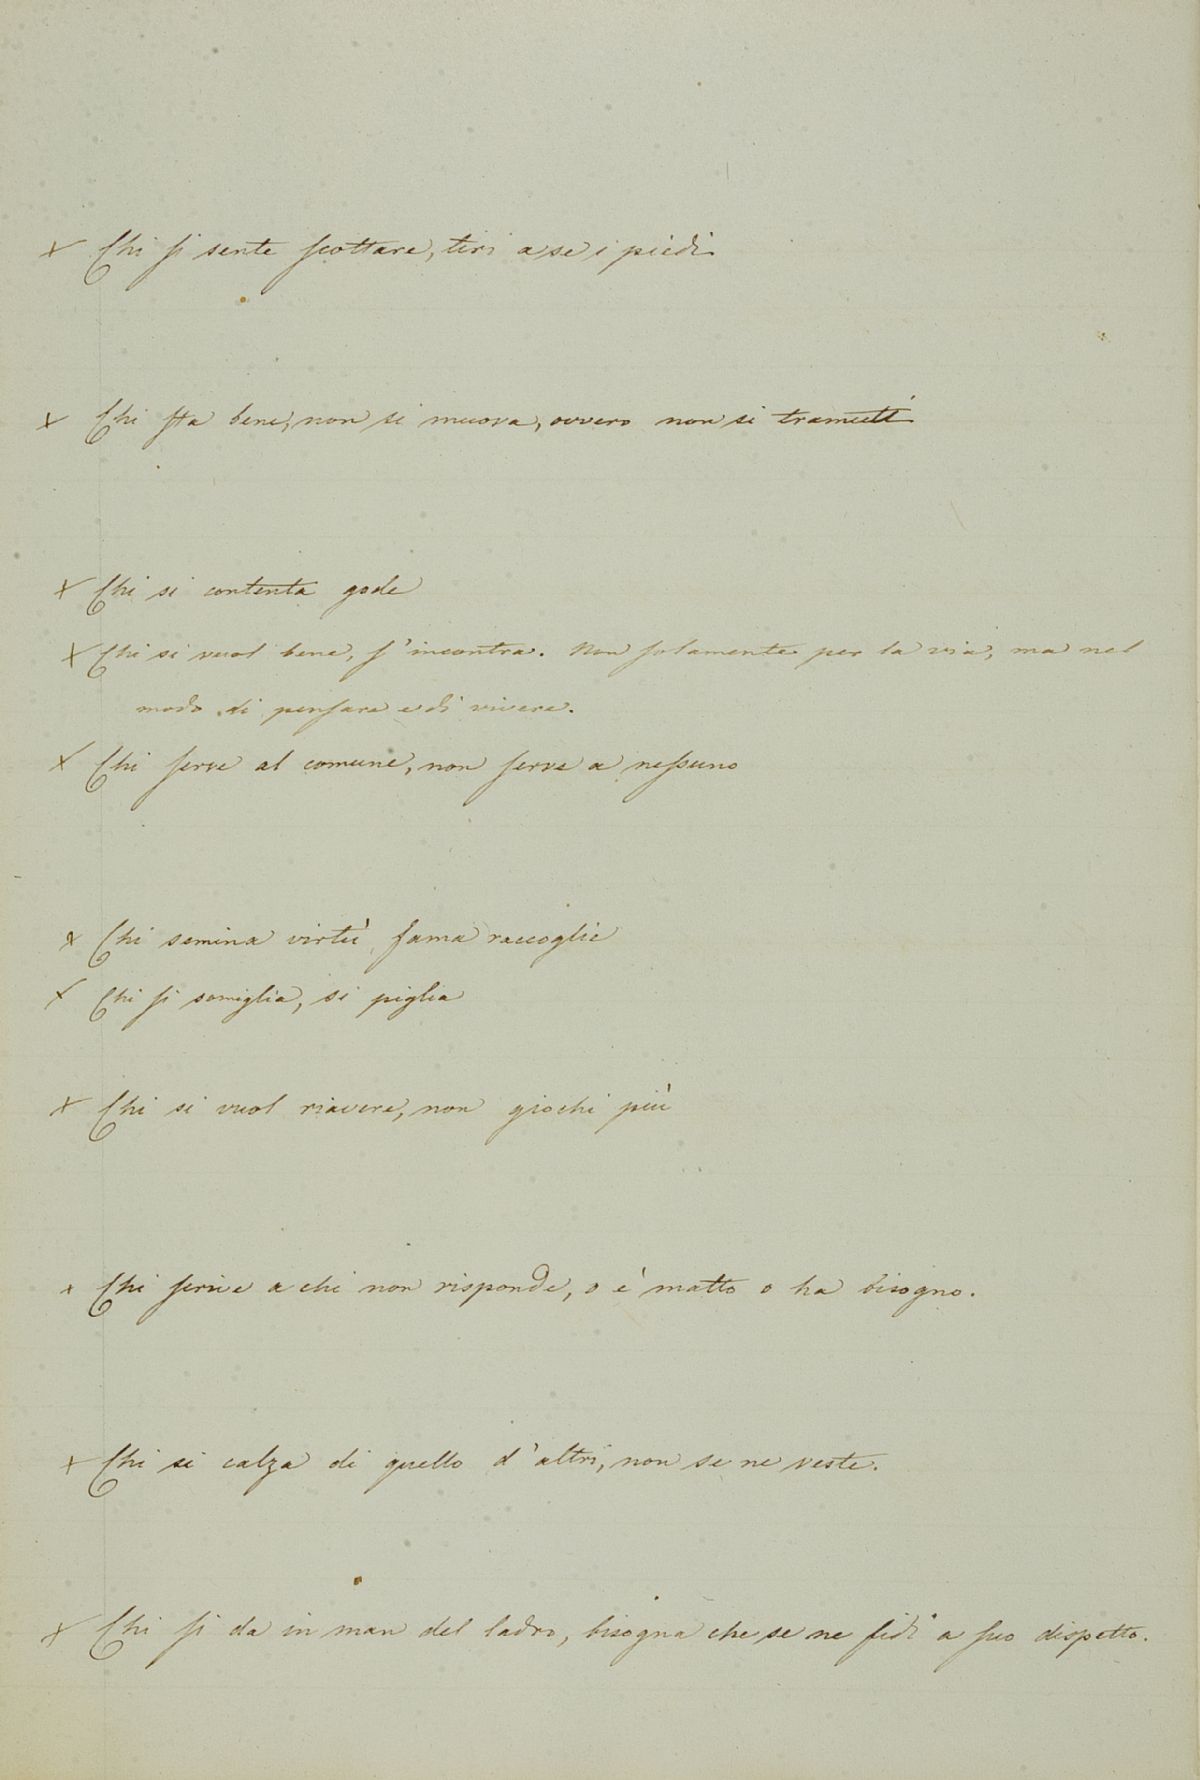 × Chi si sente scottare, tiri a se i piedi
× Chi sta bene, non si muova, ovvero non si tramuti
× Chi si contenta gode
× Chi si vuol bene, s'incontra. Non solamente per la via, ma nel
modo di pensare e di vivere.
× Chi serve al comune, non serve a nessuno
× Chi semina virtù, fama raccoglie
× Chi si somiglia, si piglia
× Chi si vuol riavere, non giochi più
× Chi serive a chi non risponde, o è matto o ha bisogno.
× Chi si calza di quello d'altri, non se ne veste.
× Chi si da in man del ladro, bisogna che se ne fidi a suo dispetto.